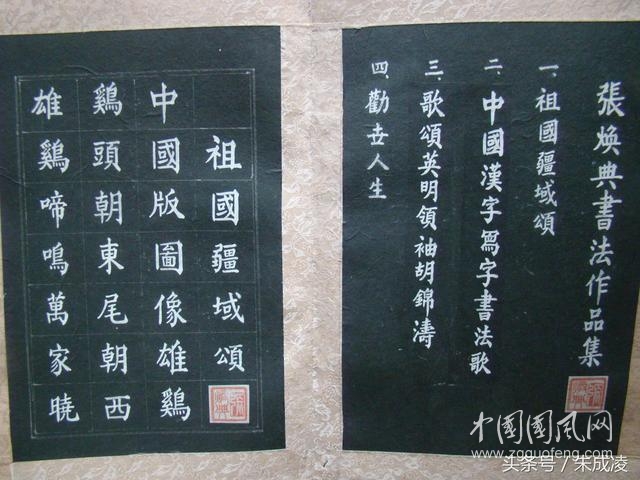 張煥典書法作品集
一.祖國疆域頌
二.中國漢字寫字書法歌
三.歌頌英明領袖胡錦濤
四.勸世人生
祖國疆域頌
中國版圖像雄鷄
鷄頭朝東尾朝西
雄鷄啼鳴萬家曉
中国國风网
www.zgguofeng.com
头条号/朱成凌